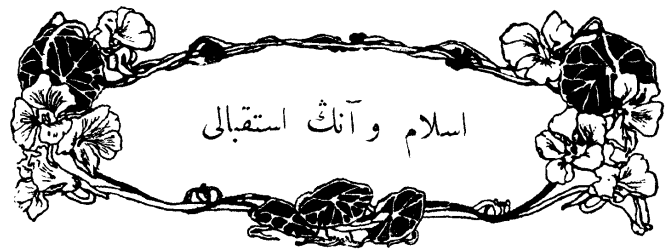 اسلام و آنڭ استقبالى